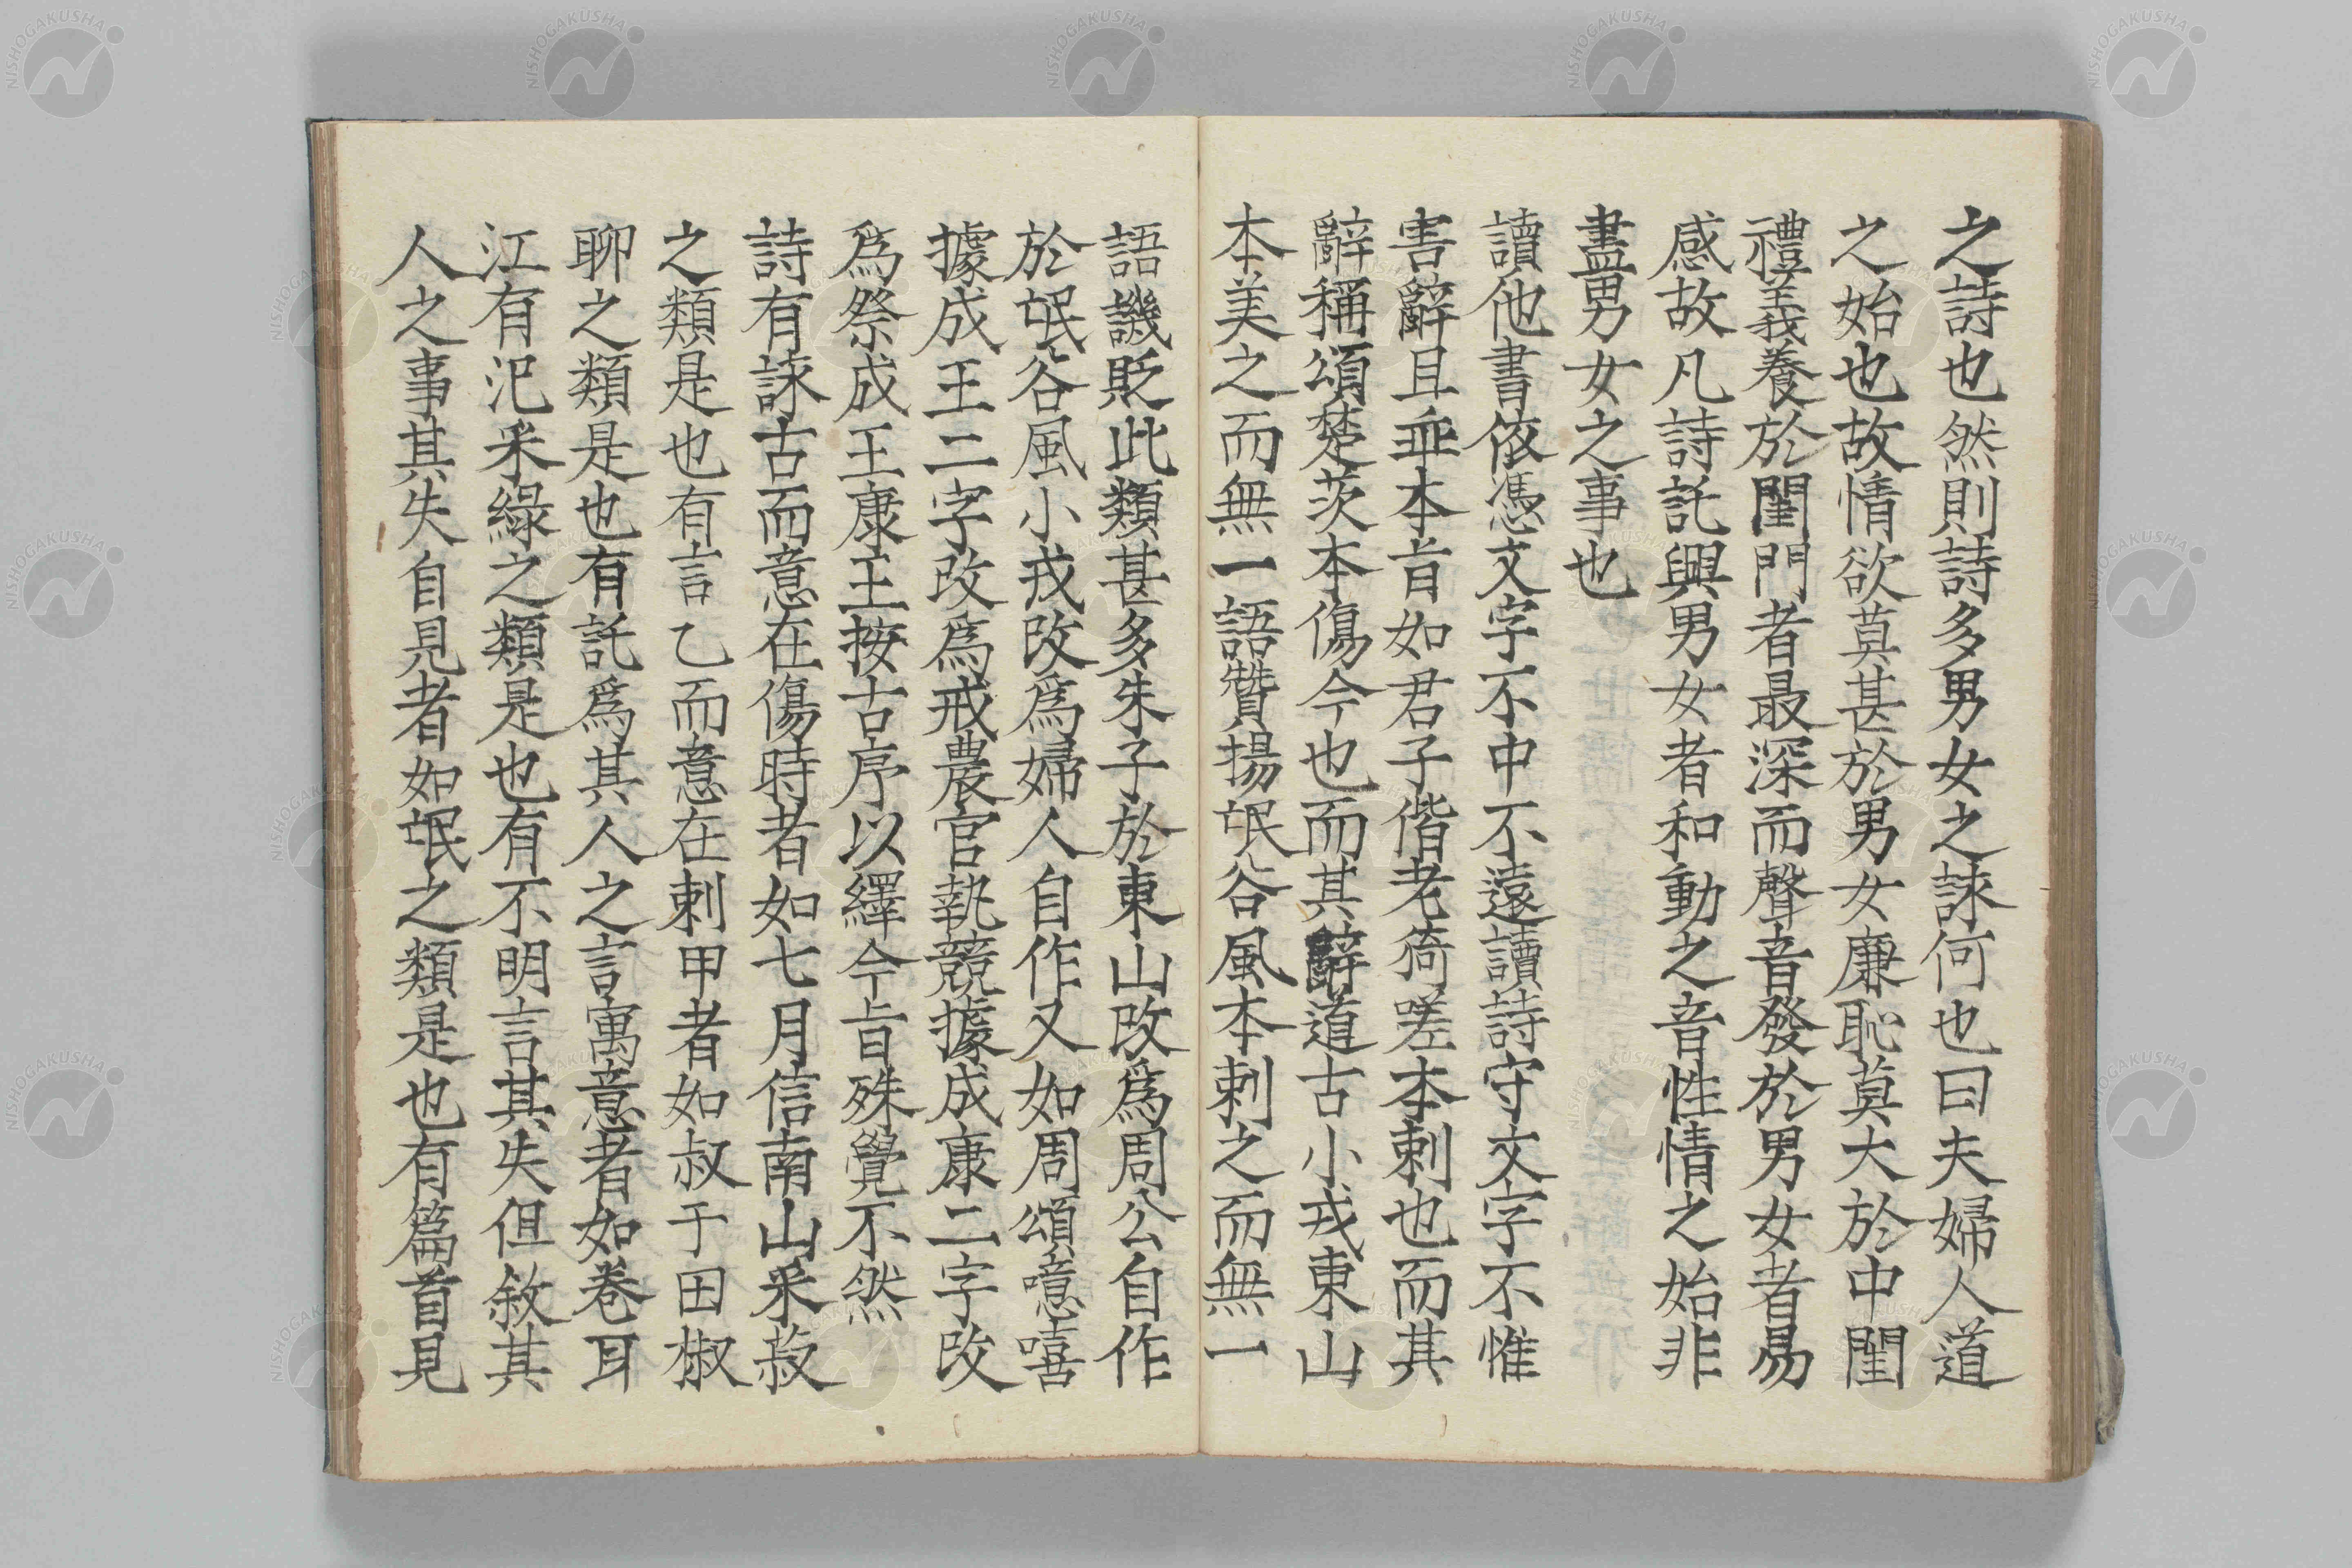 之詩也然則詩多男女之詠何也曰夫婦人道
之始也故情欲莫甚於男女廉恥莫大於中閨
禮義養於閨門者最深而聲音發於男女者易
感故凡詩託興男女者和動之音性情之始非
盡男女之事也
讀他書依憑文字不中不遠讀詩守文字不惟
害辭且乖本旨如君子偕老猗嗟本刺也而其
辭稱頌楚茨本傷今也而其辭道古小戎東山
本美之而無一語贊揚氓谷風本刺之而無一
語譏貶此類甚多朱子於東山改爲周公自作
於氓谷風小戎改爲婦人自作又如周頌噫嘻
據成王二字改爲戒農官執競據成康二字改
爲祭成王康王按古序以繹今旨殊覺不然
詩有詠古而意在傷時者如七月信南山采菽
之類是也有言乙而意在刺甲者如叔于田椒
聊之類是也有託爲其人之言寓意者如卷耳
江有汜采綠之類是也有不明言其失但敘其
人之事其失自見者如氓之類是也有篇首見
NISHOGAKUSHA